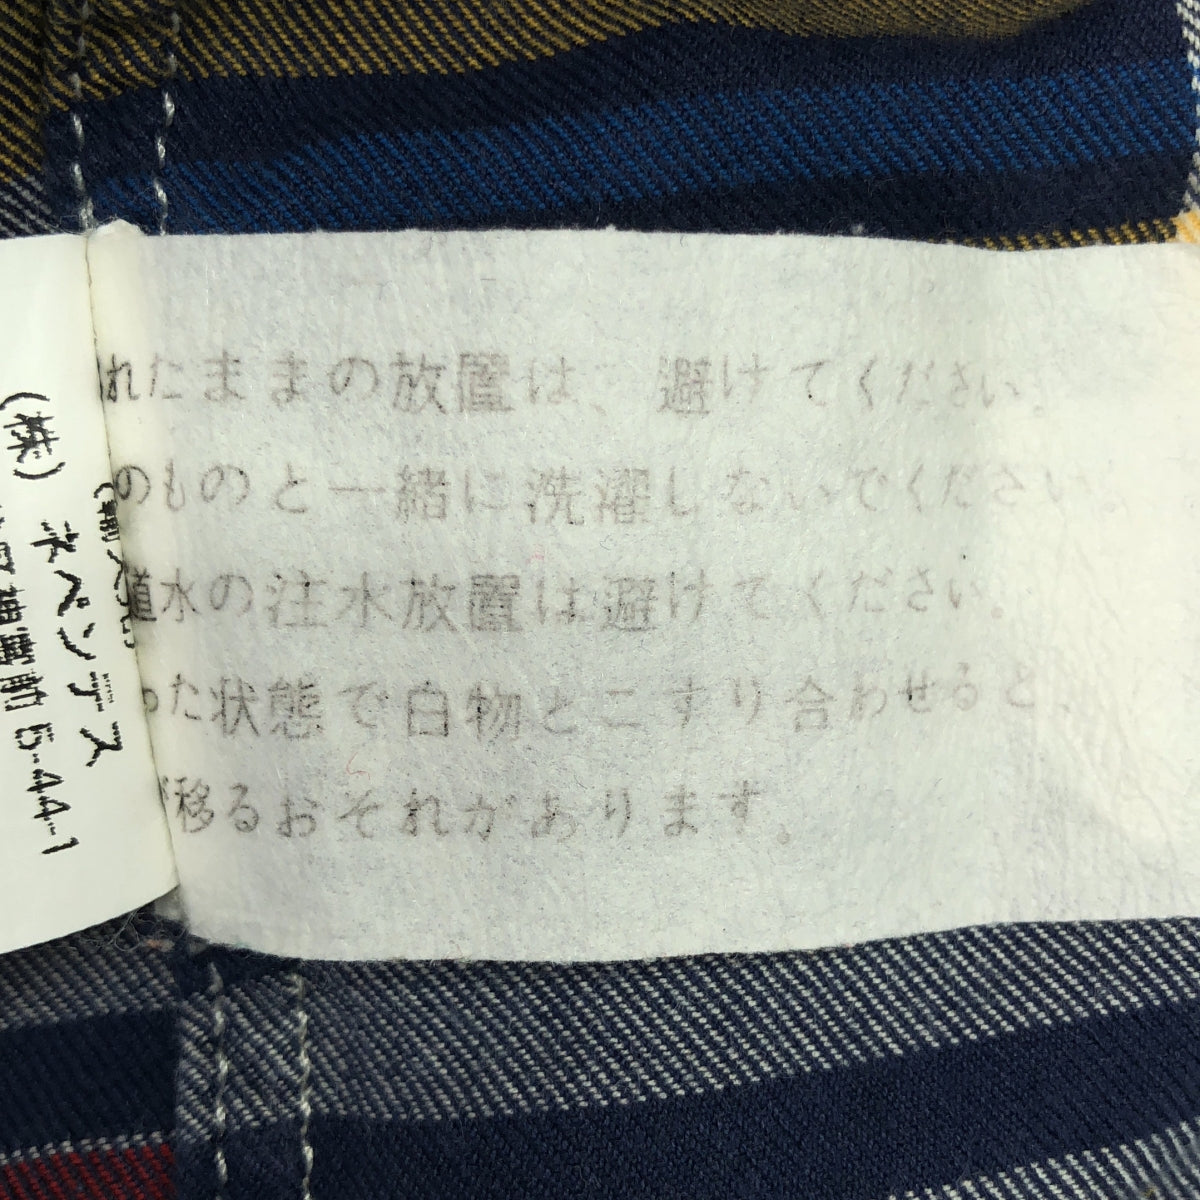 れたままの放置は、避けてください。
のものと一緒に洗濯しないでください。
道水の注水放置は避けてください。
った状態で白物とこすり合わせると、
が移るおそれがあります。
(株) ホペンデス
5-44-1